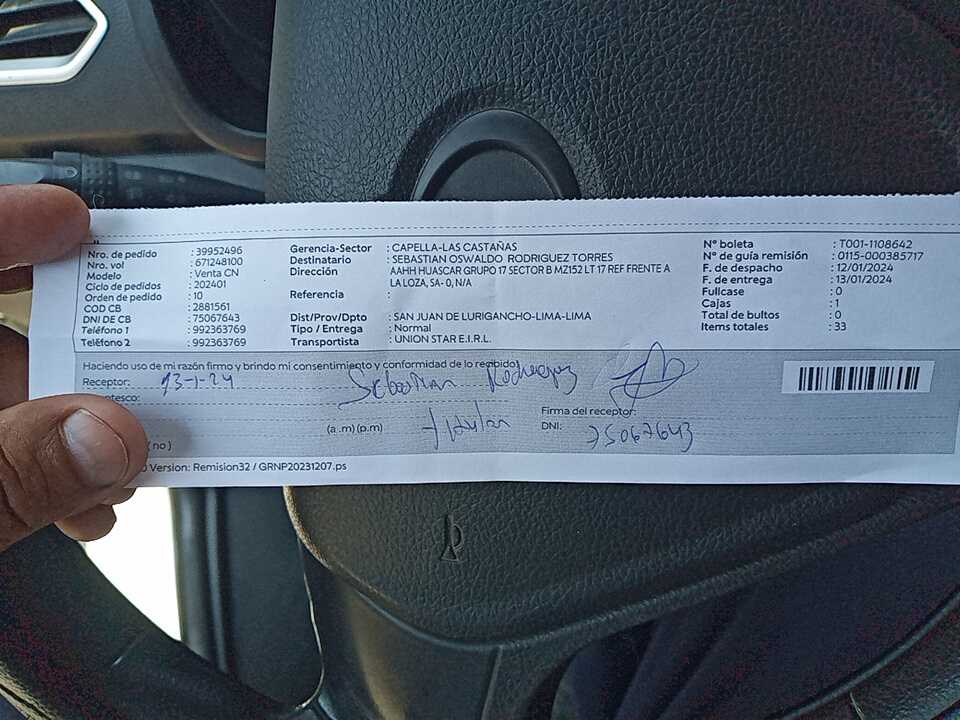 Nro. de pedido : 39952496
Nro. vol : 671248100
Modelo : Venta CN
Ciclo de pedidos : 202401
Orden de pedido : 10
COD CB : 2881561
DNI DE CB : 75067643
Teléfono 1 : 992363769
Teléfono 2 : 992363769
Gerencia-Sector : CAPELLA-LAS CASTAÑAS
Destinatario : SEBASTIAN OSWALDO RODRIGUEZ TORRES
Dirección : AAHH HUASCAR GRUPO 17 SECTOR B MZ152 LT 17 REF FRENTE A
LA LOZA, SA- 0, N/A
Referencia :
Dist/Prov/Dpto : SAN JUAN DE LURIGANCHO-LIMA-LIMA
Tipo / Entrega : Normal
Transportista : UNION STAR E.I.R.L.
N° boleta : T001-1108642
N° de guía remisión : 0115-000385717
F. de despacho : 12/01/2024
F. de entrega : 13/01/2024
Fullcase : 0
Cajas : 1
Total de bultos : 0
Items totales : 33
Haciendo uso de mi razón firmo y brindo mi consentimiento y conformidad de lo recibido)
Receptor: 13-1-24 Sebastian Rodriguez
ntesco:
(a .m) (p.m) Titular
Firma del receptor:
DNI: 75067643
( no )
o Version: Remision32 / GRNP20231207.ps